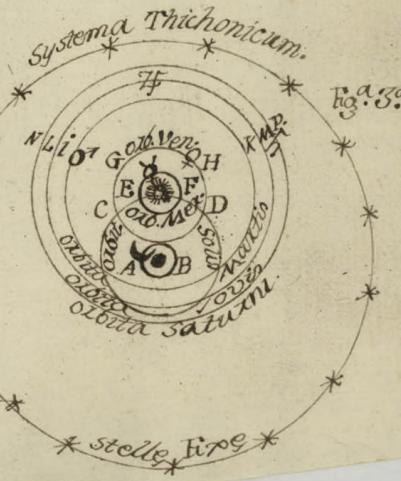 Systema Thichonicum.
Fig.ª 3.ª
♃
N L i ♂
K M P
♄
G orb. Ven. ♀ H
E F
orb. Mer.
C D
orbit Solis
A B
orbita Martis
orbita Jovis
orbita Saturni
Stellę Fixę